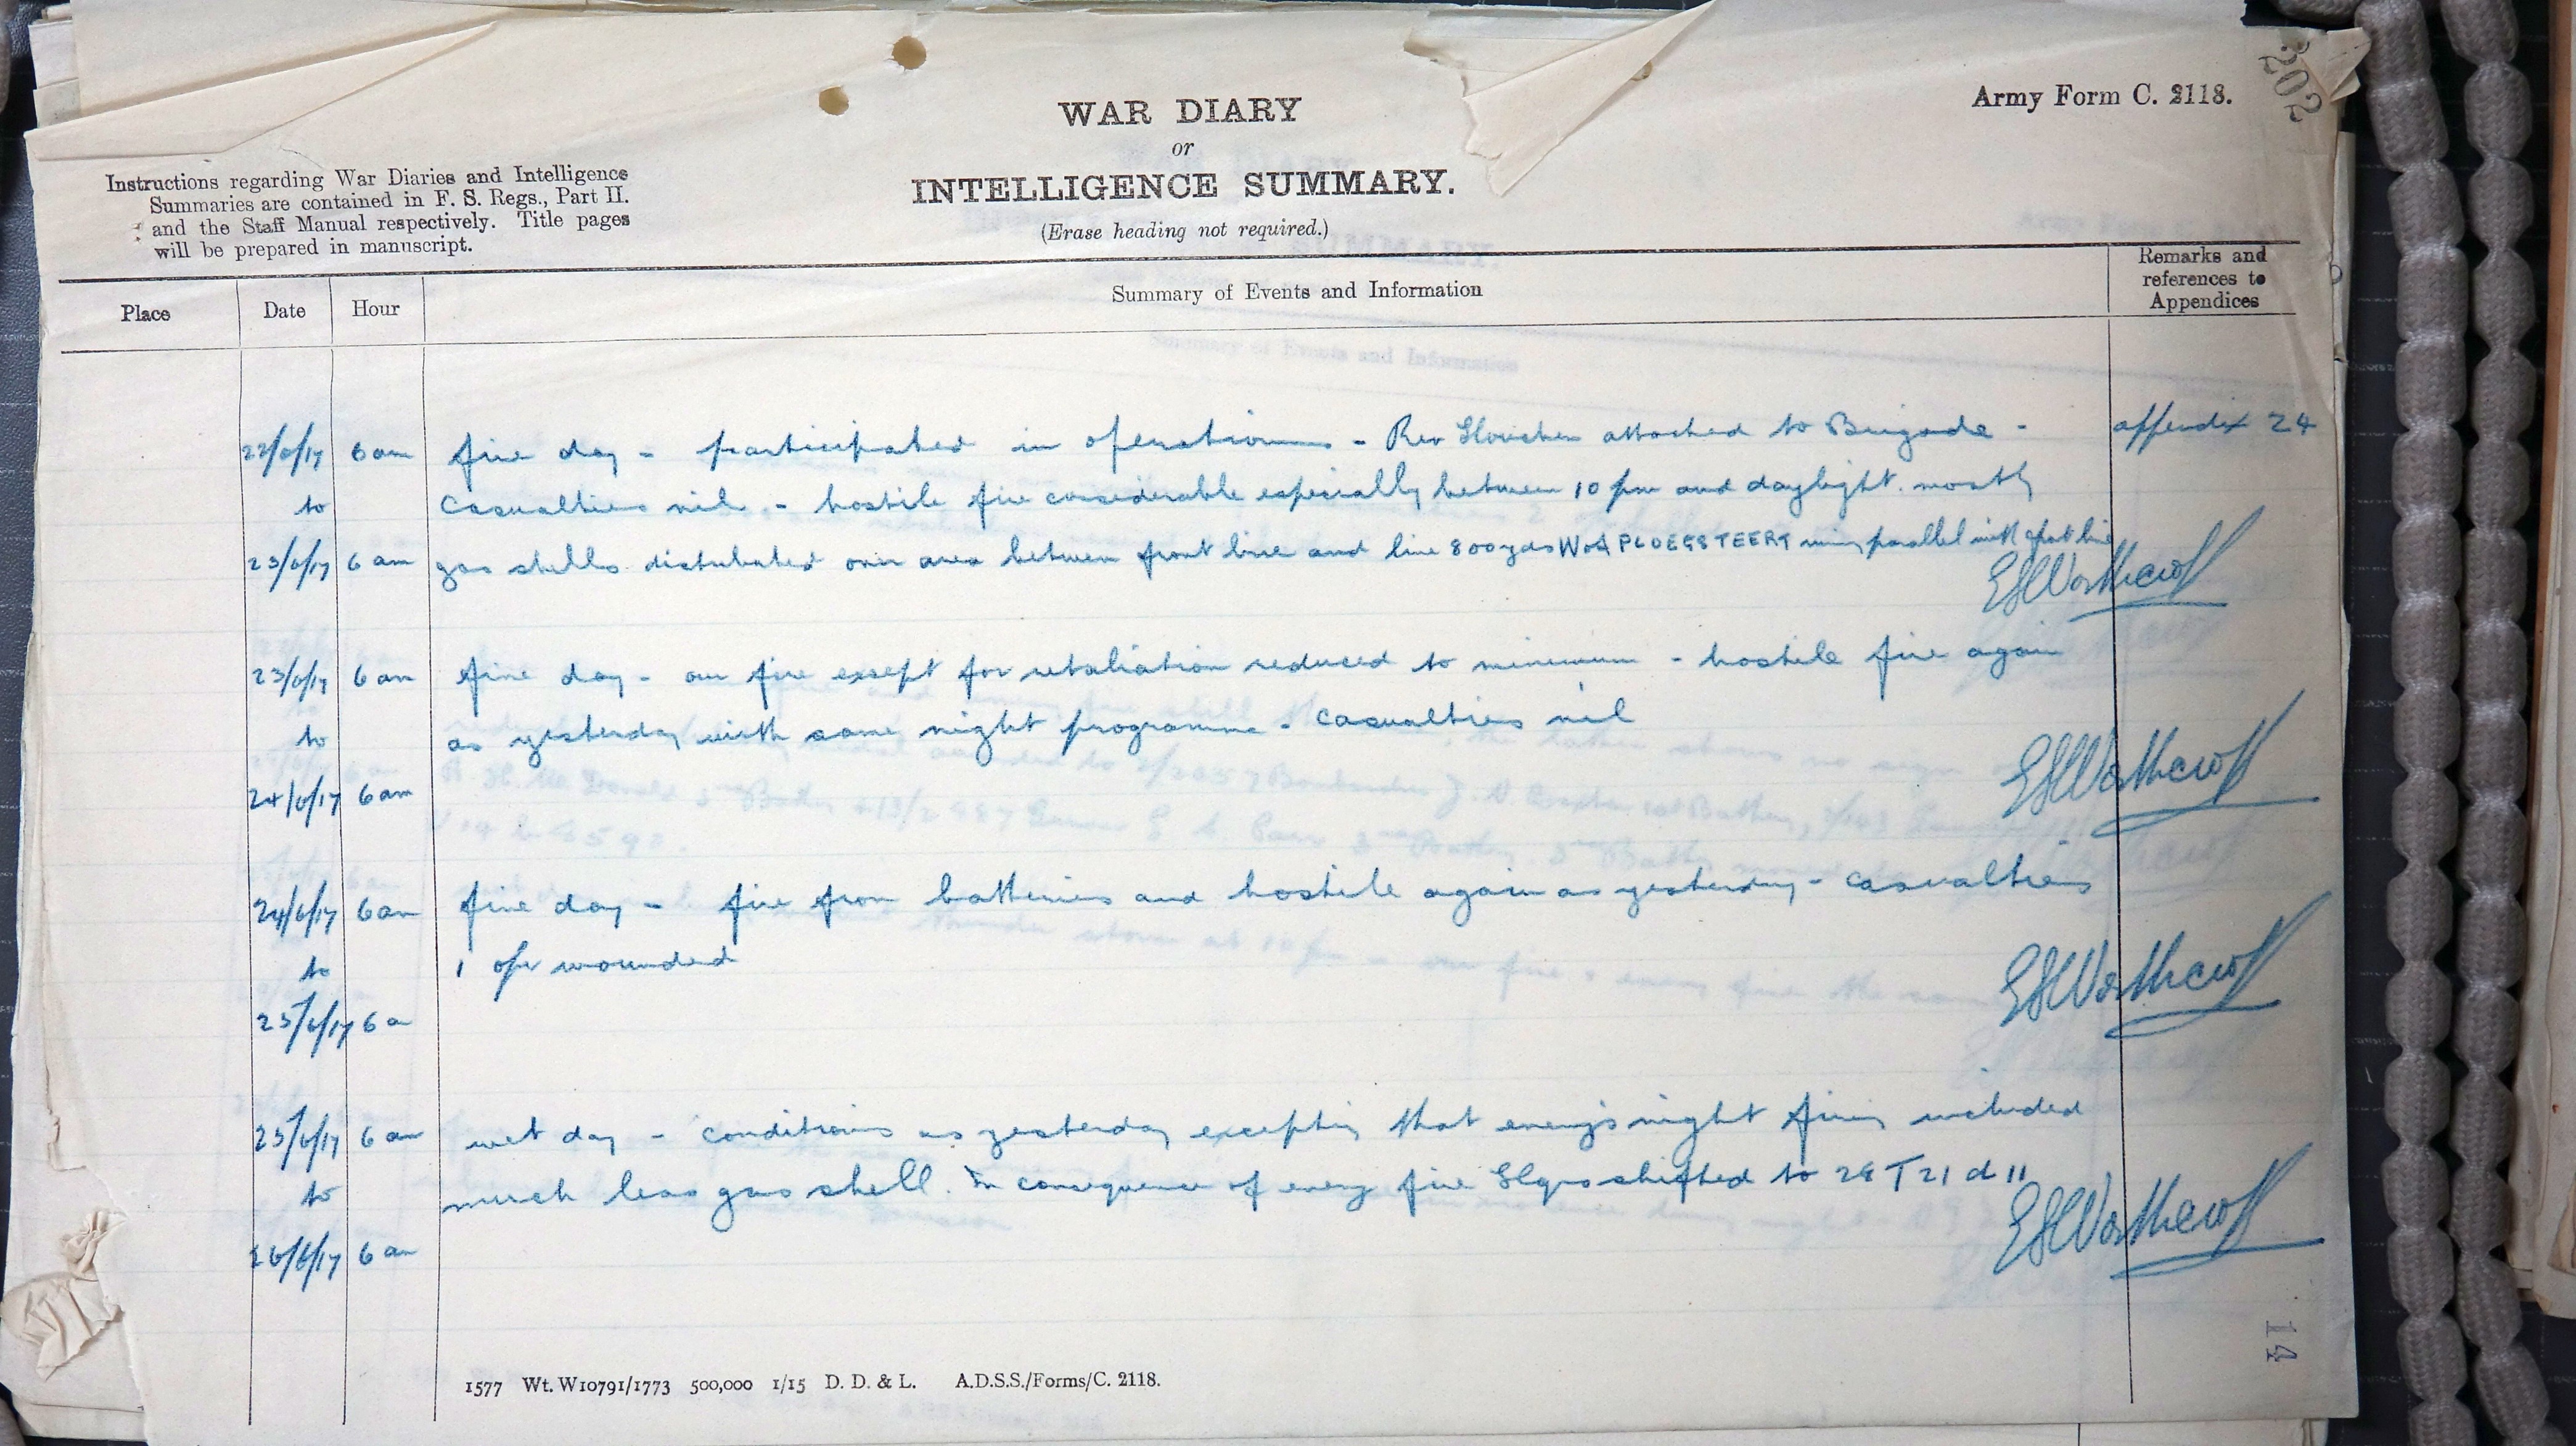 202
Army Form C. 2118.
WAR DIARY
or
INTELLIGENCE SUMMARY.
(Erase heading not required.)
Instructions regarding War Diaries and Intelligence
Summaries are contained in F. S. Regs., Part II.
and the Staff Manual respectively. Title pages
will be prepared in manuscript.
Place Date Hour Summary of Events and Information Remarks and references to Appendices
22/6/17 6 am fine day - participated in operations - Rev attached to Brigade - appendix 24
to Casualties nil - hostile fire considerable especially between 10 pm and daylight. mostly
23/6/17 6 am gas shells distributed over area between front line and line 800 yds W of PLOEGSTEERT parallel with that line
23/6/17 6 am fine day - our fire except for retaliation reduced to minimum - hostile fire again
to as yesterday with same night programme - Casualties nil
24/6/17 6 am
24/6/17 6 am fine day - fire from batteries and hostile again as yesterday - casualties
to 1 opr wounded
25/6/17 6 a
25/6/17 6 am wet day - conditions as yesterday excepting that enemys night firing included
to much less gas shell. In consequence of enemy fire Hqrs shifted to 28 T 21 d 11
26/6/17 6 am
14
1577 Wt. W10791/1773 500,000 1/15 D. D. & L. A.D.S.S./Forms/C. 2118.